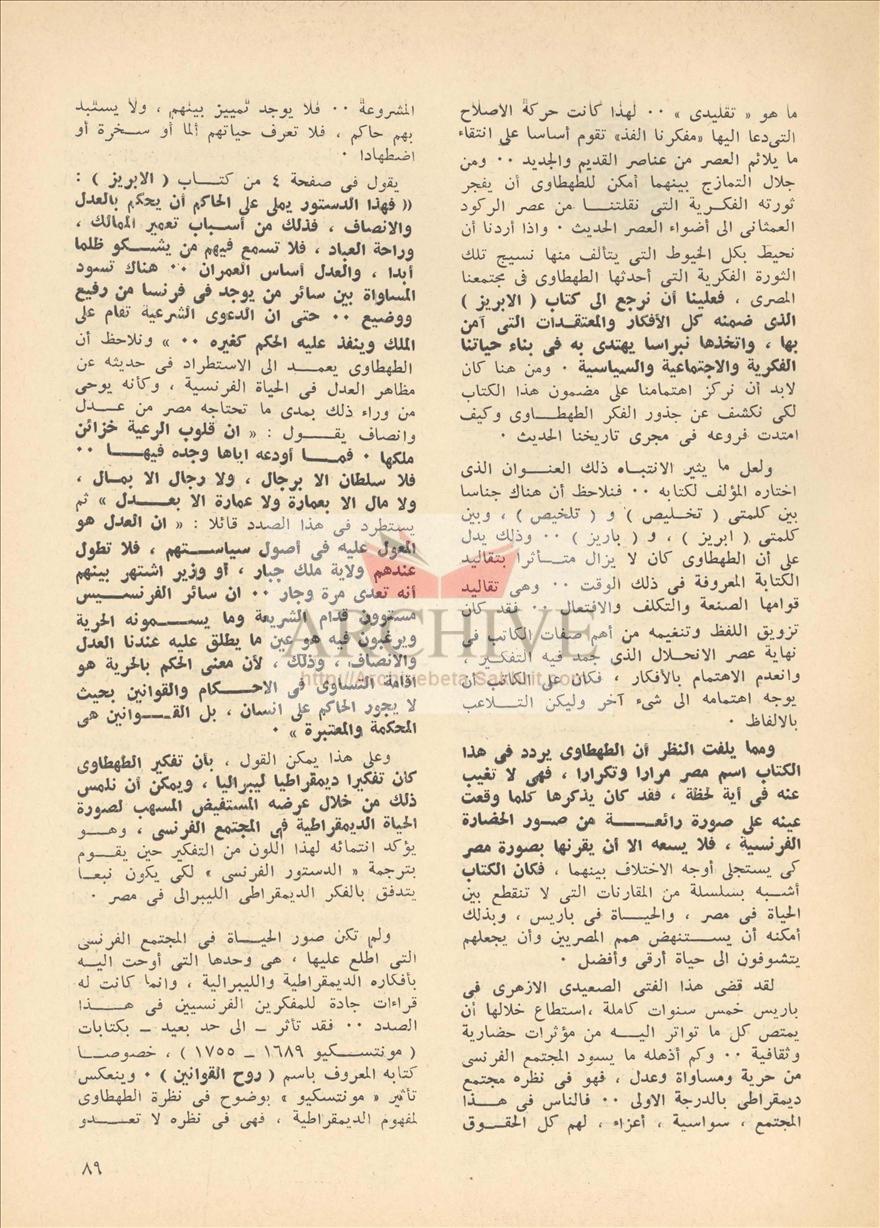 ما هو « تقليدى » ٠٠ لهذا كانت حركة الاصلاح
التى دعا اليها «مفكرنا الفذ» تقوم أساسا على انتقاء
ما يلائم العصر من عناصر القديم والجديد ٠٠ ومن
جلال التمازج بينهما أمكن للطهطاوى أن يفجر
ثورته الفكرية التى نقلتنا من عصر الركود
العمثانى الى أضواء العصر الحديث ٠ واذا أردنا أن
نحيط بكل الخيوط التى يتألف منها نسيج تلك
الثورة الفكرية التى أحدثها الطهطاوى فى مجتمعنا
المصرى ، فعلينا أن نرجع الى كتاب ( الابريز )
الذى ضمنه كل الأفكار والمعتقدات التى آمن
بها ، واتخذها نبراسا يهتدى به فى بناء حياتنا
الفكرية والاجتماعية والسياسية ٠ ومن هنا كان
لابد أن نركز اهتمامنا على مضمون هذا الكتاب
لكى نكشف عن جذور الفكر الطهطاوى وكيف
امتدت فروعه فى مجرى تاريخنا الحديث ٠
ولعل ما يثير الانتباه ذلك العنوان الذى
اختاره المؤلف لكتابه ٠٠ فنلاحظ أن هناك جناسا
بين كلمتى ( تخليص ) و ( تلخيص ) ، وبين
كلمتى ( ابريز ) ، و ( باريز ) ٠٠ وذلك يدل
على أن الطهطاوى كان لا يزال متأثرا بتقاليد
الكتابة المعروفة فى ذلك الوقت ٠٠ وهى تقاليد
قوامها الصنعة والتكلف والافتعال ٠٠ فقد كان
تزويق اللفظ وتنغيمه من أهم صفات الكاتب فى
نهاية عصر الانحلال الذى جمد فيه التفكير ،
وانعدم الاهتمام بالأفكار ، فكان على الكاتب أن
يوجه اهتمامه الى شىء آخر وليكن التلاعب
بالالفاظ ٠
ومما يلفت النظر أن الطهطاوى يردد فى هذا
الكتاب اسم مصر مرارا وتكرارا ، فهى لا تغيب
عنه فى أية لحظة ، فقد كان يذكرها كلما وقعت
عينه على صورة رائعة من صور الحضارة
الفرنسية ، فلا يسعه الا أن يقرنها بصورة مصر
كى يستجلى أوجه الاختلاف بينهما ، فكان الكتاب
أشبه بسلسلة من المقارنات التى لا تنقطع بين
الحياة فى مصر ، والحياة فى باريس ، وبذلك
أمكنه أن يستنهض همم المصريين وأن يجعلهم
يتشوفون الى حياة أرقى وأفضل ٠
لقد قضى هذا الفتى الصعيدى الازهرى فى
باريس خمس سنوات كاملة ،استطاع خلالها أن
يمتص كل ما تواتر اليه من مؤثرات حضارية
وثقافية ٠٠ وكم أذهله ما يسود المجتمع الفرنسى
من حرية ومساواة وعدل ، فهو فى نظره مجتمع
ديمقراطى بالدرجة الاولى ٠٠ فالناس فى هذا
المجتمع ، سواسية ، أعزاء ، لهم كل الحقوق
المشروعة ٠٠ فلا يوجد تمييز بينهم ، ولا يستبد
بهم حاكم ، فلا تعرف حياتهم ألما أو سخرة أو
اضطهادا ٠
يقول فى صفحة ٤ من كتاب ( الابريز ) :
(( فهذا الدستور يملى على الحاكم أن يحكم بالعدل
والانصاف ، فذلك من أسباب تعمير الممالك ،
وراحة العباد ، فلا تسمع فيهم من يشكو ظلما
أبدا ، والعدل أساس العمران ٠٠ هناك تسود
المساواة بين سائر من يوجد فى فرنسا من رفيع
ووضيع ٠٠ حتى ان الدعوى الشرعية تقام على
الملك وينفذ عليه الحكم كغيره ٠٠ » ونلاحظ أن
الطهطاوى يعمد الى الاستطراد فى حديثه عن
مظاهر العدل فى الحياة الفرنسية ، وكأنه يوحى
من وراء ذلك بمدى ما تحتاجه مصر من عدل
وانصاف يقول : « ان قلوب الرعية خزائن
ملكها ٠ فما أودعه اياها وجده فيها ٠٠
فلا سلطان الا برجال ، ولا رجال الا بمال ،
ولا مال الا بعمارة ولا عمارة الا بعدل » ثم
يستطرد فى هذا الصدد قائلا : « ان العدل هو
المعول عليه فى أصول سياستهم ، فلا تطول
عندهم ولاية ملك جبار ، أو وزير اشتهر بينهم
أنه تعدى مرة وجار ٠٠ ان سائر الفرنسيس
مستوون قدام الشريعة وما يسمونه الحرية
ويرغبون فيه هو عين ما يطلق عليه عندنا العدل
والانصاف ، وذلك ، لأن معنى الحكم بالحرية هو
اقامة التساوى فى الاحكام والقوانين بحيث
لا يجور الحاكم على انسان ، بل القوانين هى
المحكمة والمعتبرة » ٠
وعلى هذا يمكن القول ، بأن تفكير الطهطاوى
كان تفكيرا ديمقراطيا ليبراليا ، ويمكن أن نلمس
ذلك من خلال عرضه المستفيض المسهب لصورة
الحياة الديمقراطية فى المجتمع الفرنسى ، وهو
يؤكد انتمائه لهذا اللون من التفكير حين يقوم
بترجمة « الدستور الفرنسى » لكى يكون نبعا
يتدفق بالفكر الديمقراطى الليبرالى فى مصر ٠
ولم تكن صور الحياة فى المجتمع الفرنسى
التى اطلع عليها ، هى وحدها التى أوحت اليه
بأفكاره الديمقراطية والليبرالية ، وانما كانت له
قراءات جادة للمفكرين الفرنسيين فى هذا
الصدد ٠٠ فقد تأثر ــ الى حد بعيد ــ بكتابات
( مونتسكيو ١٦٨٩ ــ ١٧٥٥ ) ، خصوصا
كتابه المعروف باسم ( روح القوانين ) ٠ وينعكس
تأثير « مونتسكيو » بوضوح فى نظرة الطهطاوى
لمفهوم الديمقراطية ، فهى فى نظره لا تعدو
٨٩
ARCHIVE
http://Archivebeta.Sakhrit.com